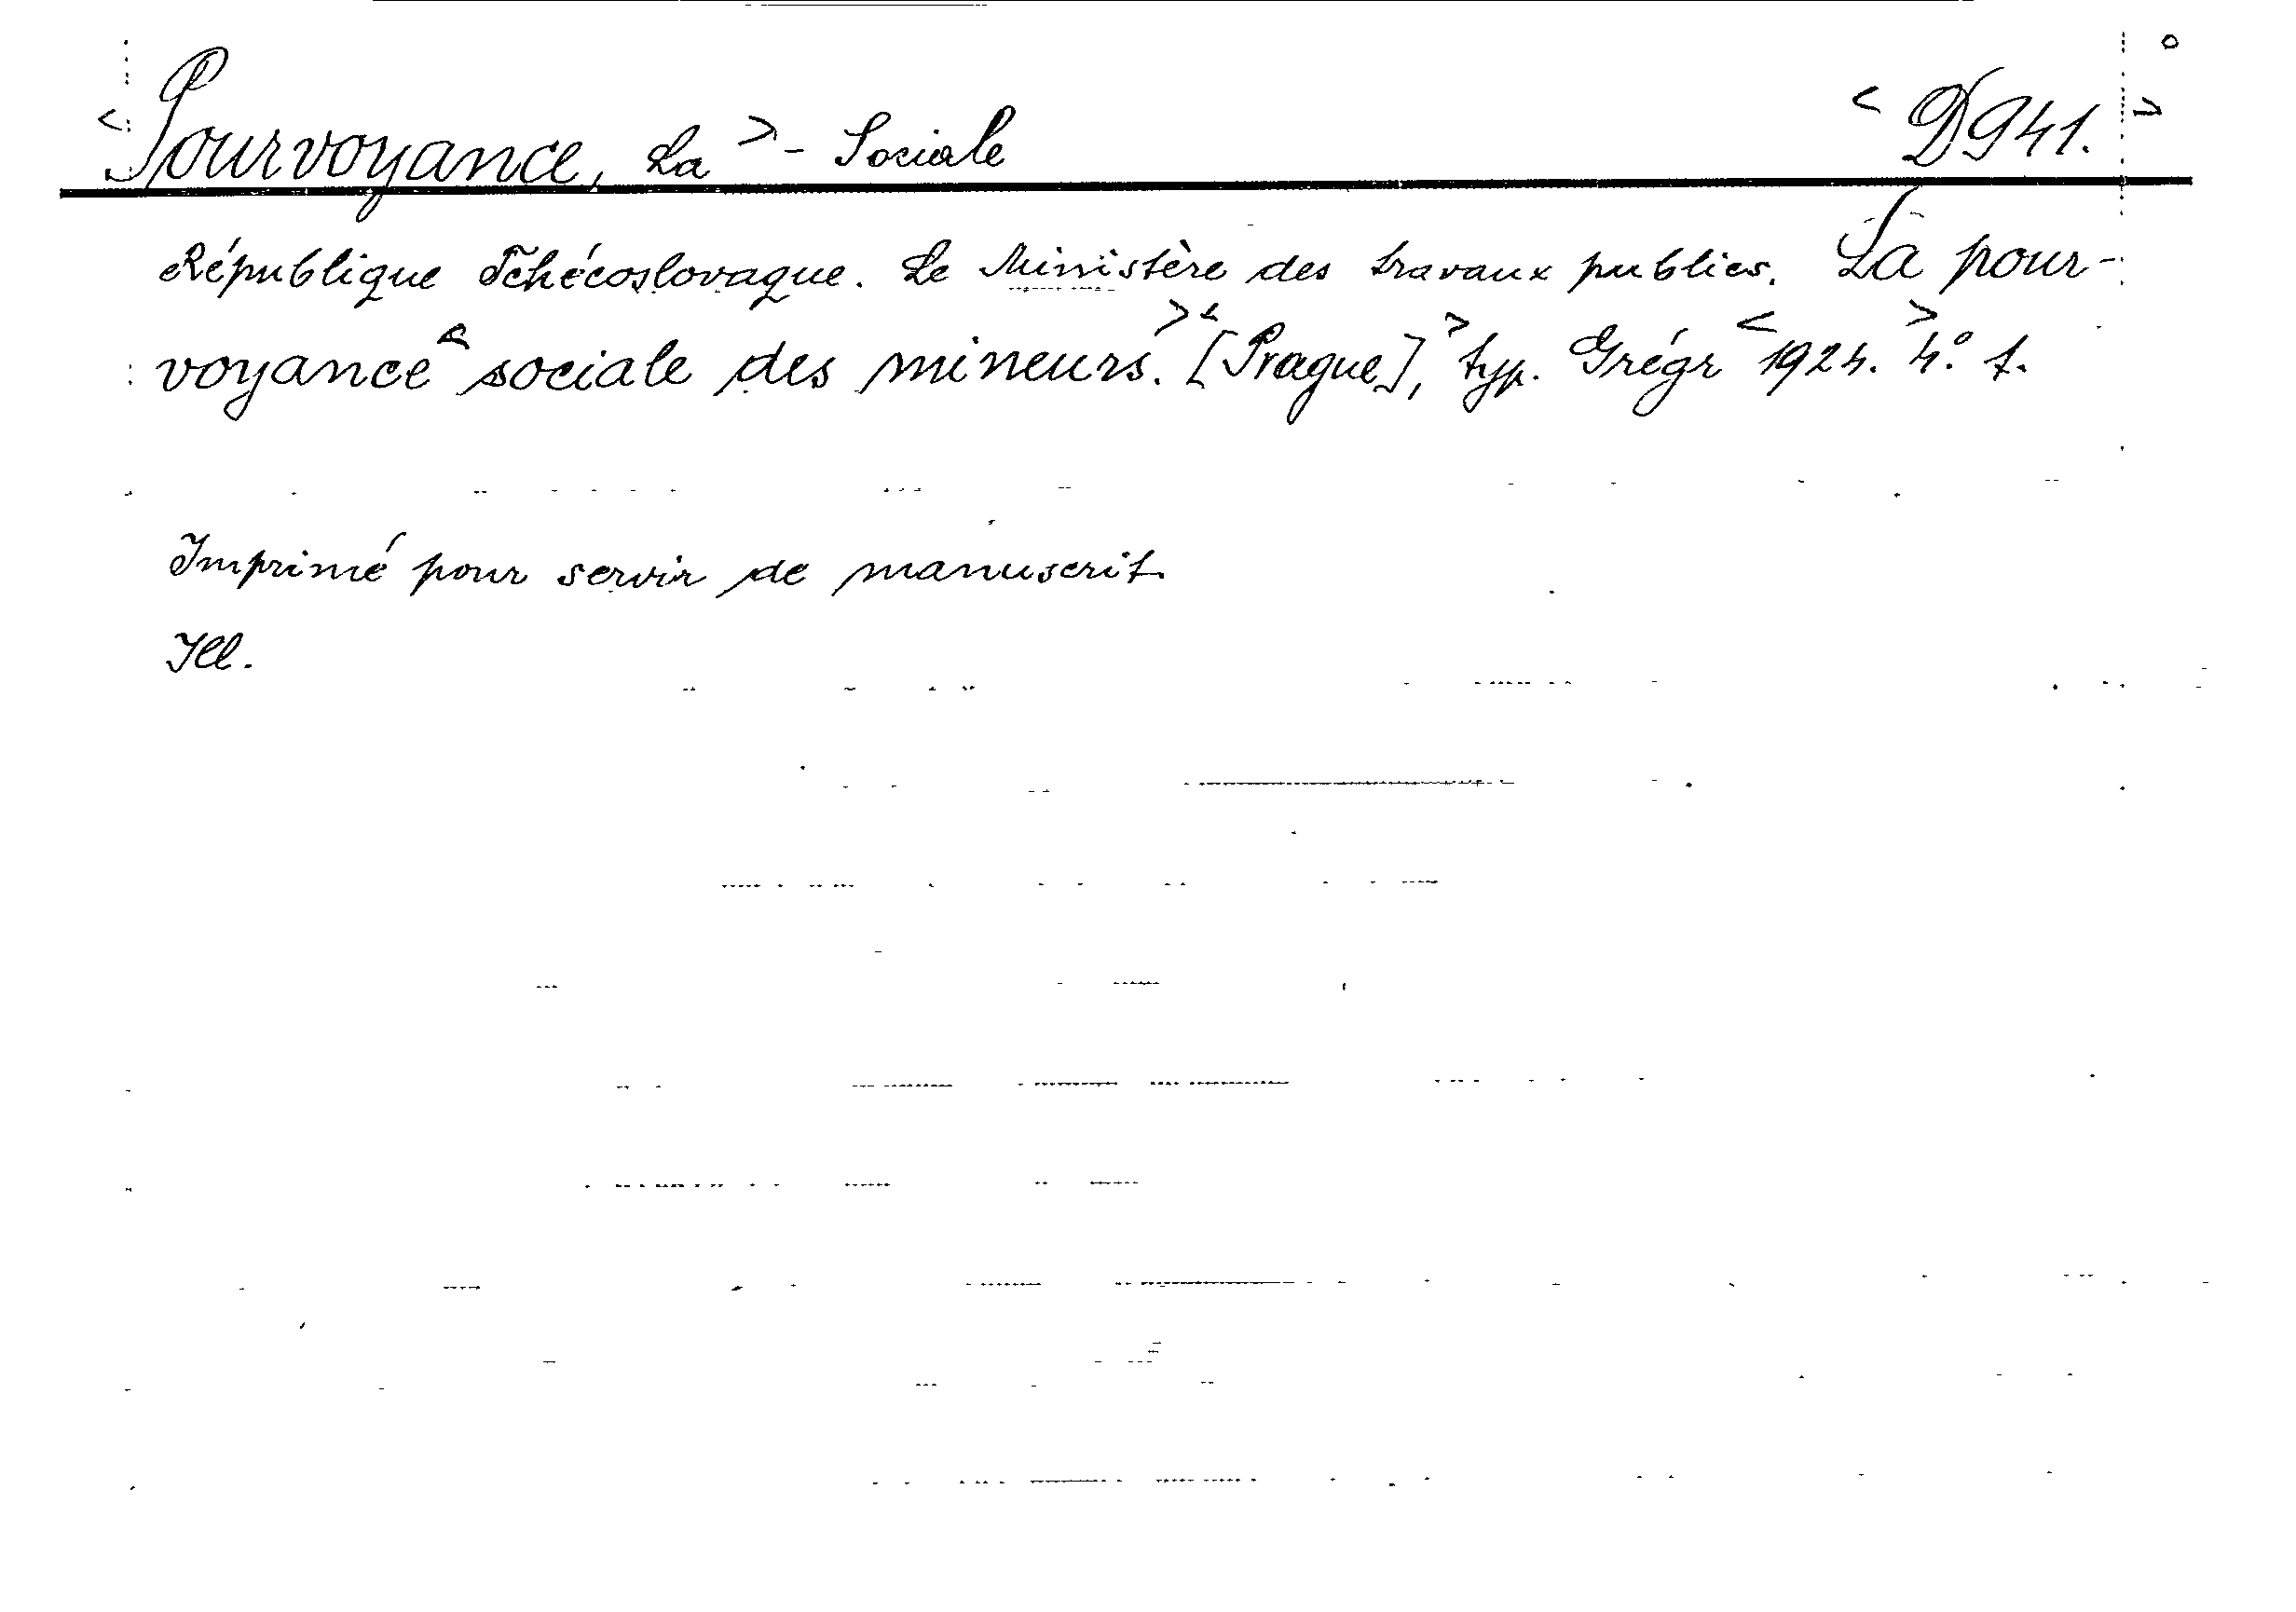 <Pourvoyance, La> - Sociale <D941.>
République Tchécoslovaque. Le Ministère des travaux publics. La pour-
voyance< sociale des mineurs.> <[Prague],> typ. Grégr <1924.> 4° f.
Imprimé pour servir de manuscrit.
Ill.